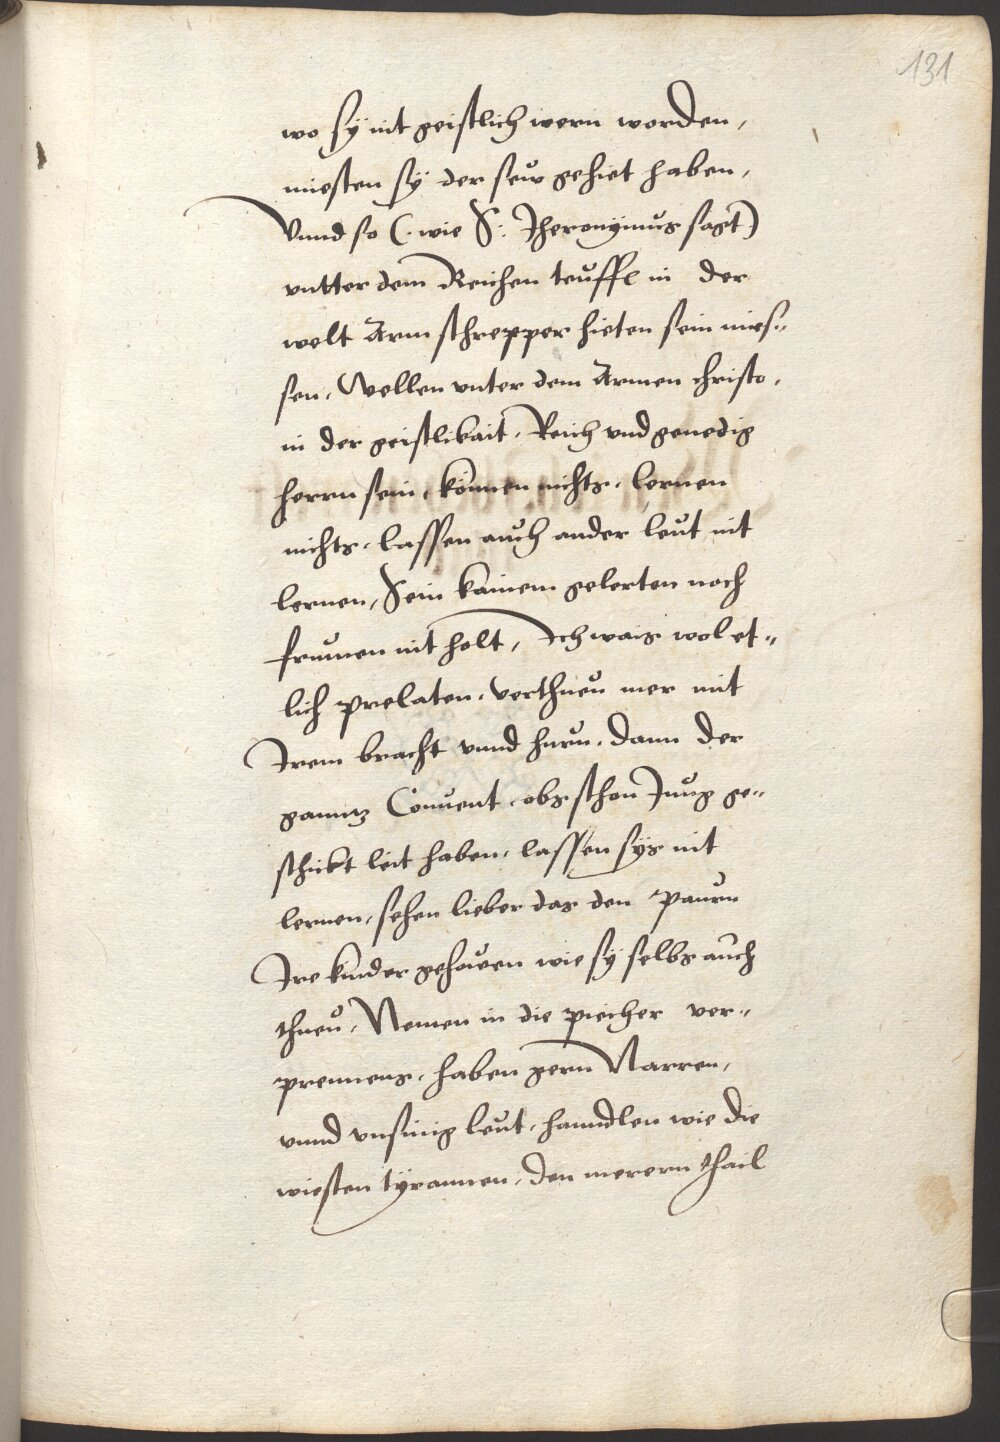 131
wo sÿ nit geistlich wern worden,
miesten sÿ der sew gehiet haben,
Vnnd so (. wie S: Jheronÿmus sagt)
vntter dem Reichen teuffl in der
welt Arm schrepper hieten sein mies⸗
sen, Wellen vnter dem Armen christo,
in der geistlikait, Reich vnd genedig
herrn sein, können nichts, lernen
nichts, lassen auch ander leut nit
lernen, Sein kainem gelerten noch
frumen nit holt, Ich wais wol et⸗
lich prelaten, verthuen mer mit
Irem bracht vnnd hurn, dann der
ganntz Conuent, obs schon Jung ge⸗
schikt leit haben, lassen sÿs nit
lernen, sehen lieber das den paurn
Ire kinder gehouen wie sÿ selbs auch
thuen, Nemen in die piecher ver⸗
prennens, haben gern Narren,
vnnd vnsinig leut, hanndlen wie die
wiesten tÿrannen, den merern thail